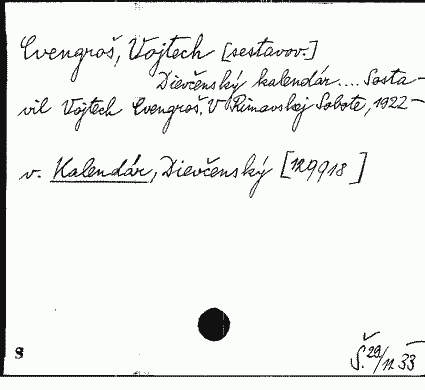 Cvengroš, Vojtech [sestavov.]
Dievčenský kalendár.... Sosta-
vil Vojtech Cvengroš. V Rimavskej Sobote, 1922-
v. Kalendár, Dievčenský [129918]
8
Š. 29/12 33